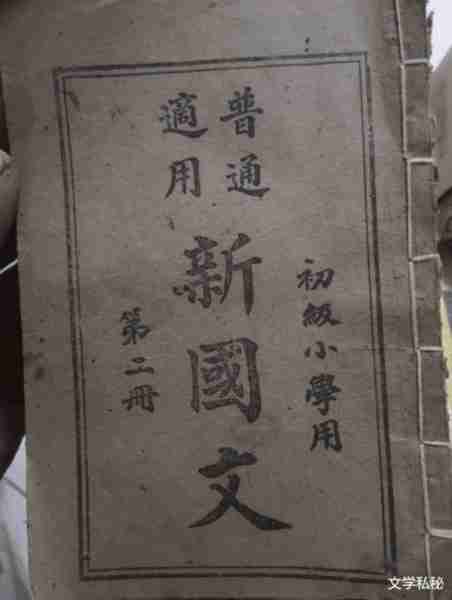 初級小學用
普通
適用
新國文
第二冊
文学私秘